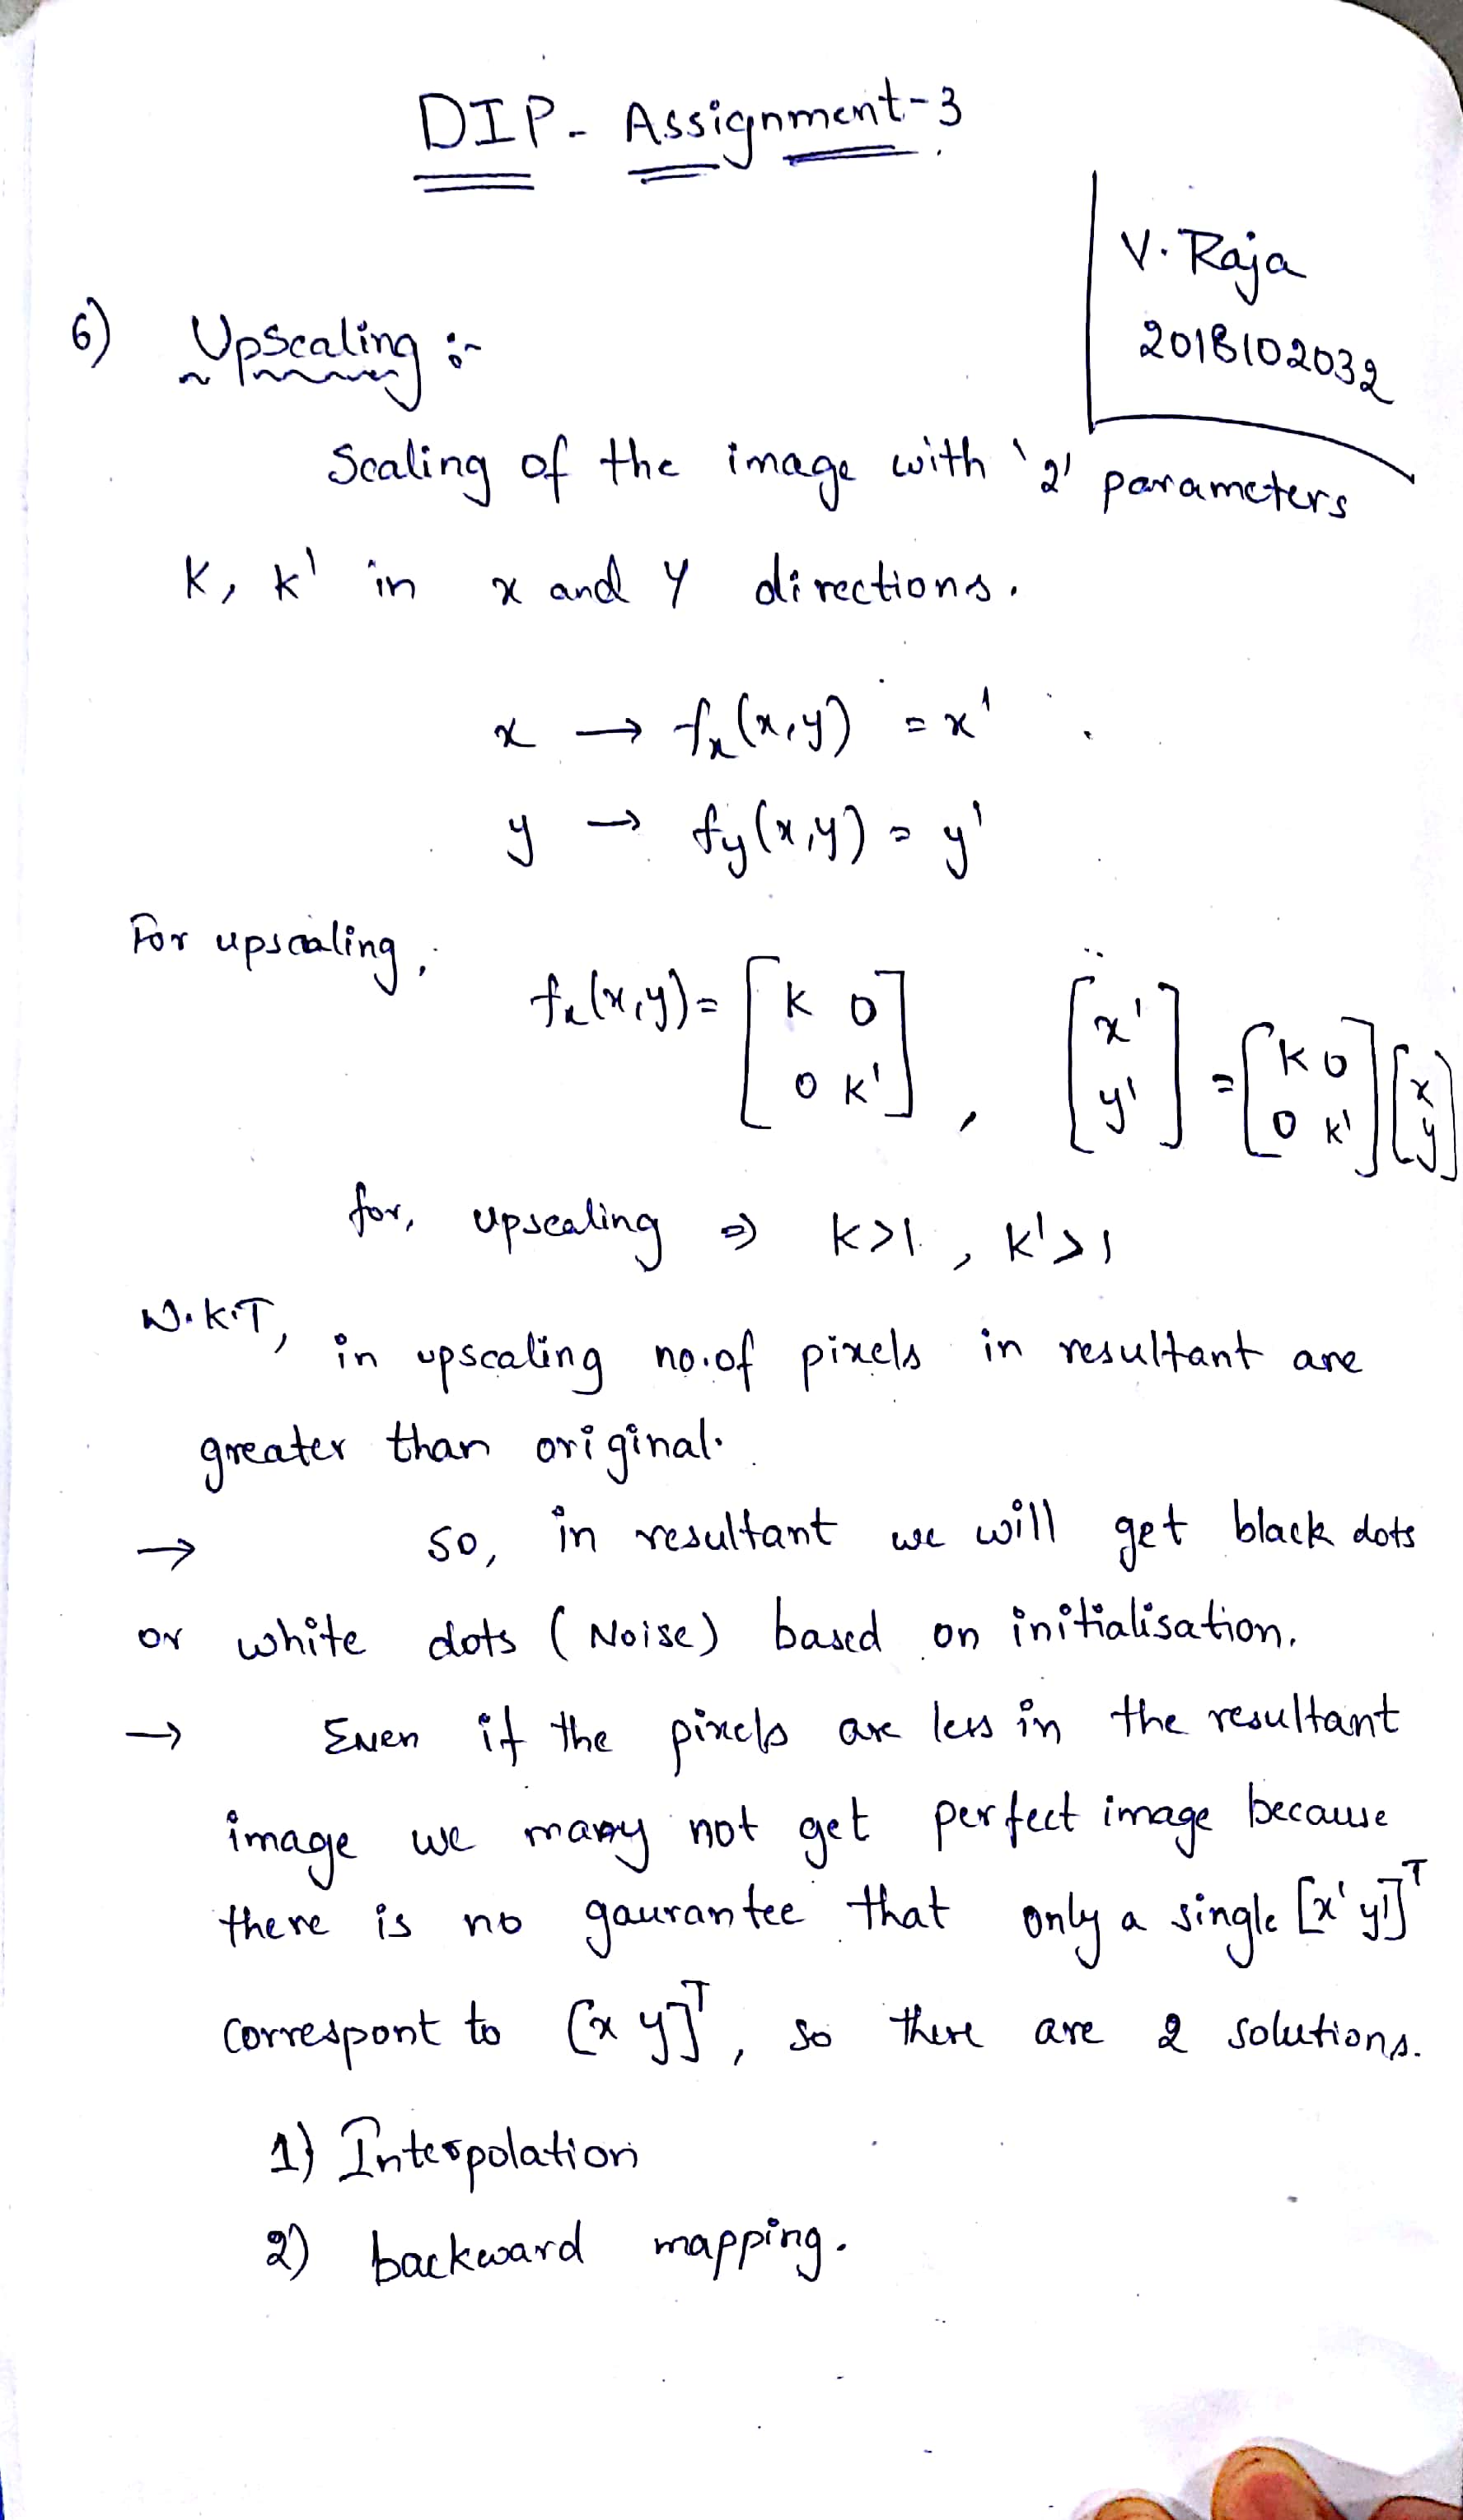 DIP- Assignment-3
V. Raja
2018102032
6) Upscaling :-
Scaling of the image with '2' parameters
K, k' in x and y directions.
x → fx(x,y) = x'
y → fy(x,y) = y'
For upscaling,
fx(x,y) = [K 0 , [x' = [K 0 [x
0 K'] y'] 0 K'] y]
for, upscaling ⇒ K>1, K'>1
W.K.T, in upscaling no.of pixels in resultant are
greater than original.
→ so, in resultant we will get black dots
or white dots (Noise) based on initialisation.
→ Even if the pixels are less in the resultant
image we many not get perfect image because
there is no gaurantee that only a single [x' y']ᵀ
correspont to [x y]ᵀ, so there are 2 solutions.
1) Interpolation
2) backward mapping.